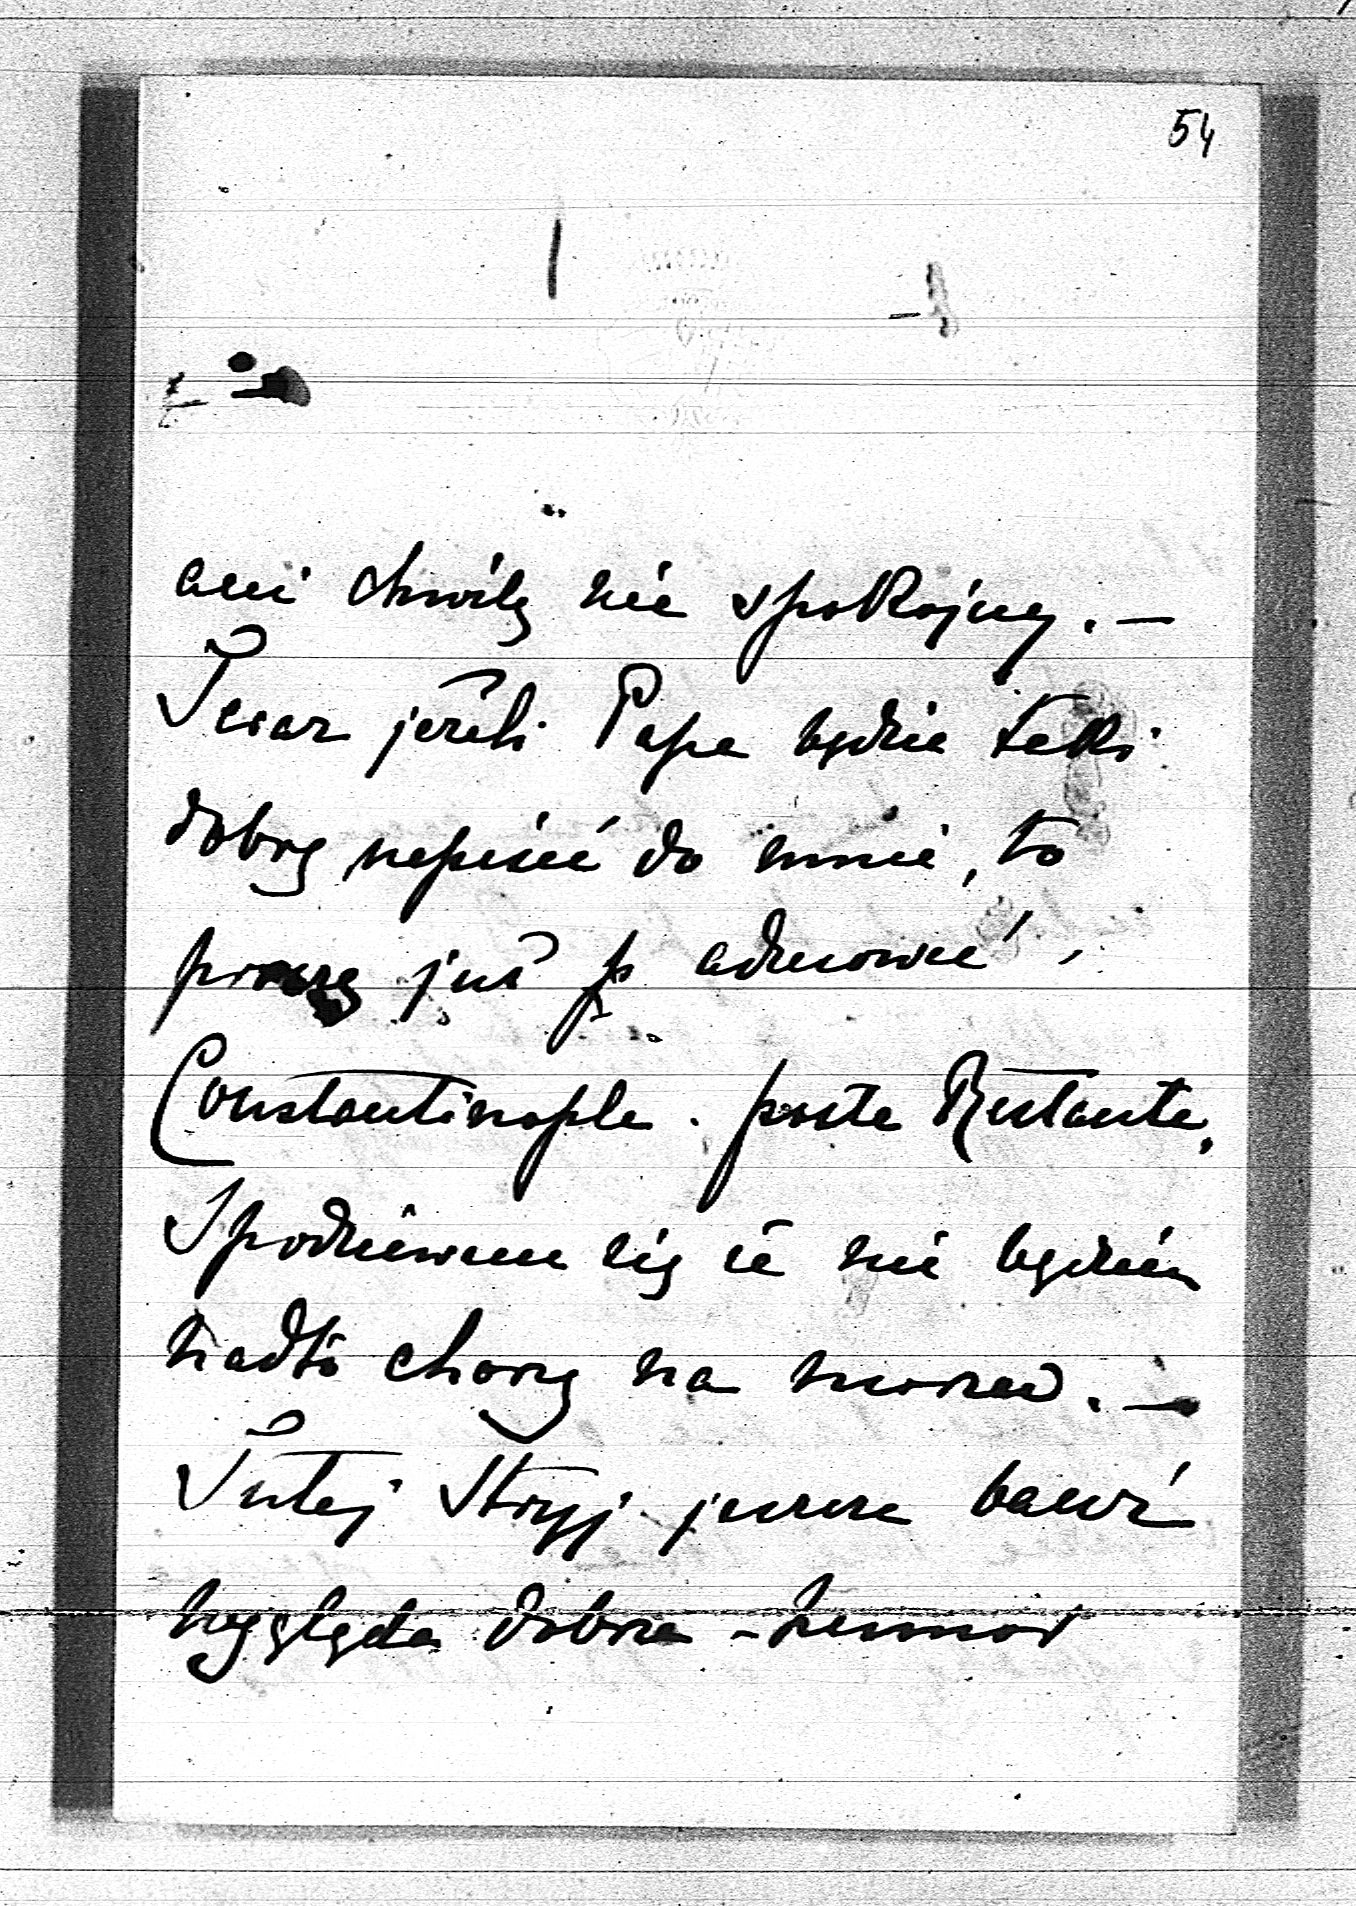 54
ani chwilę nie spokojny. —
Teraz jeżeli Papa będzie taki
dobry napisać do mnie, to
proszę już p. adresować,
Constantinople. poste Restante.
Spodziewam się że nie będziem
nadto chory na morzu. —
Tutaj Stryj jeszcze bawi
wygląda dobrze – humor